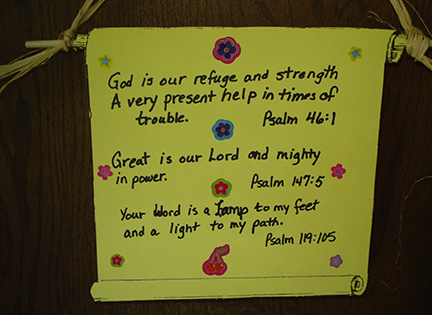 God is our refuge and strength
A very present help in times of
trouble. Psalm 46:1
Great is our Lord and mighty
in power. Psalm 147:5
Your Word is a Lamp to my feet
and a light to my path.
Psalm 119:105